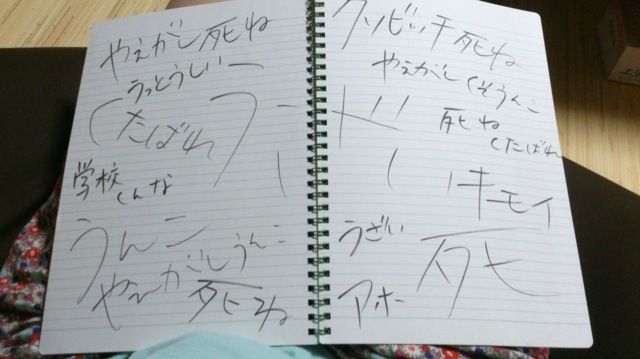 やえがし死ね
うっとうしいー
くたばれ
学校
くんな
うんこ
やえがしうんこ
死ね
クソビッチ死ね
やえがしくそうんこ
死ね
くたばれ
キモイ
うざい
死
アホー